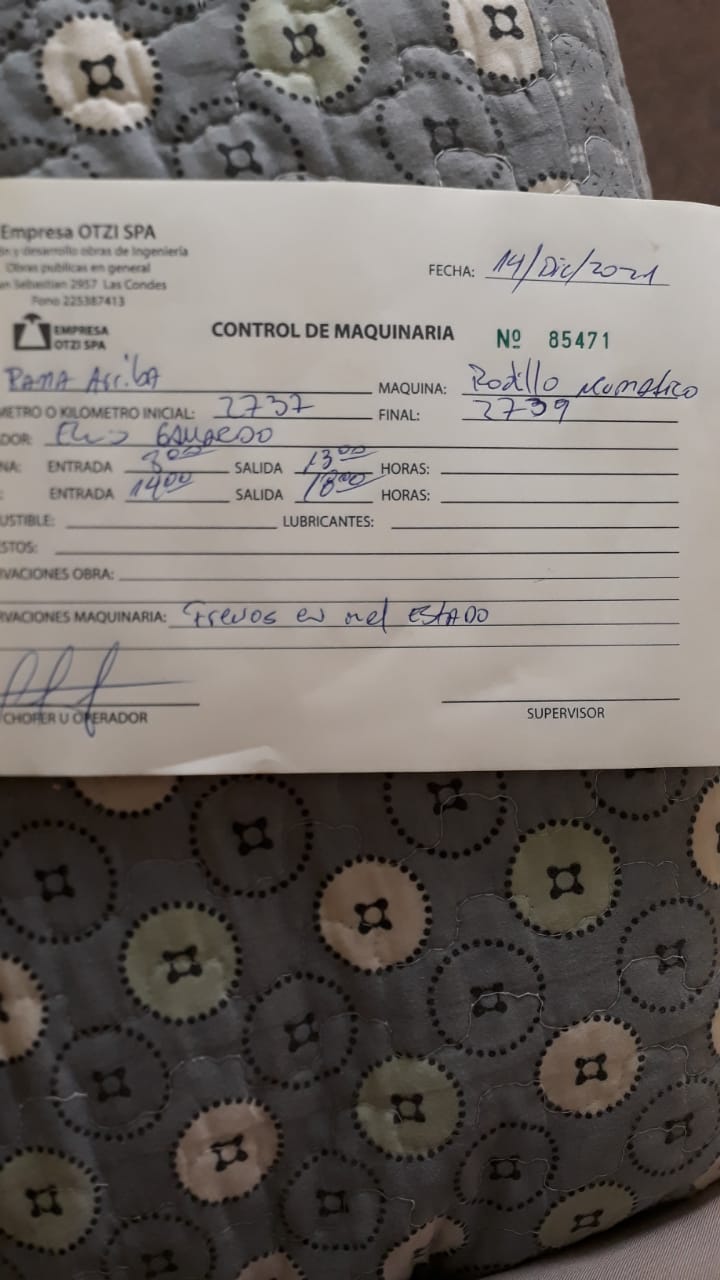 Empresa OTZI SPA
ón y desarrollo obras de Ingeniería
Obras publicas en general
an Sebastian 2957 Las Condes
Fono 225387413
FECHA: 14/Dic/2021
EMPRESA
OTZI SPA
CONTROL DE MAQUINARIA Nº 85471
PAMA ArribA MAQUINA: Rodillo neumatico
METRO O KILOMETRO INICIAL: 2737 FINAL: 2739
DOR: GALLARDO
NA: ENTRADA 8:00 SALIDA 13:00 HORAS:
: ENTRADA 14:00 SALIDA 18:00 HORAS:
USTIBLE: LUBRICANTES:
STOS:
RVACIONES OBRA:
RVACIONES MAQUINARIA: Frenos en mal ESTADO
CHOFER U OPERADOR
SUPERVISOR